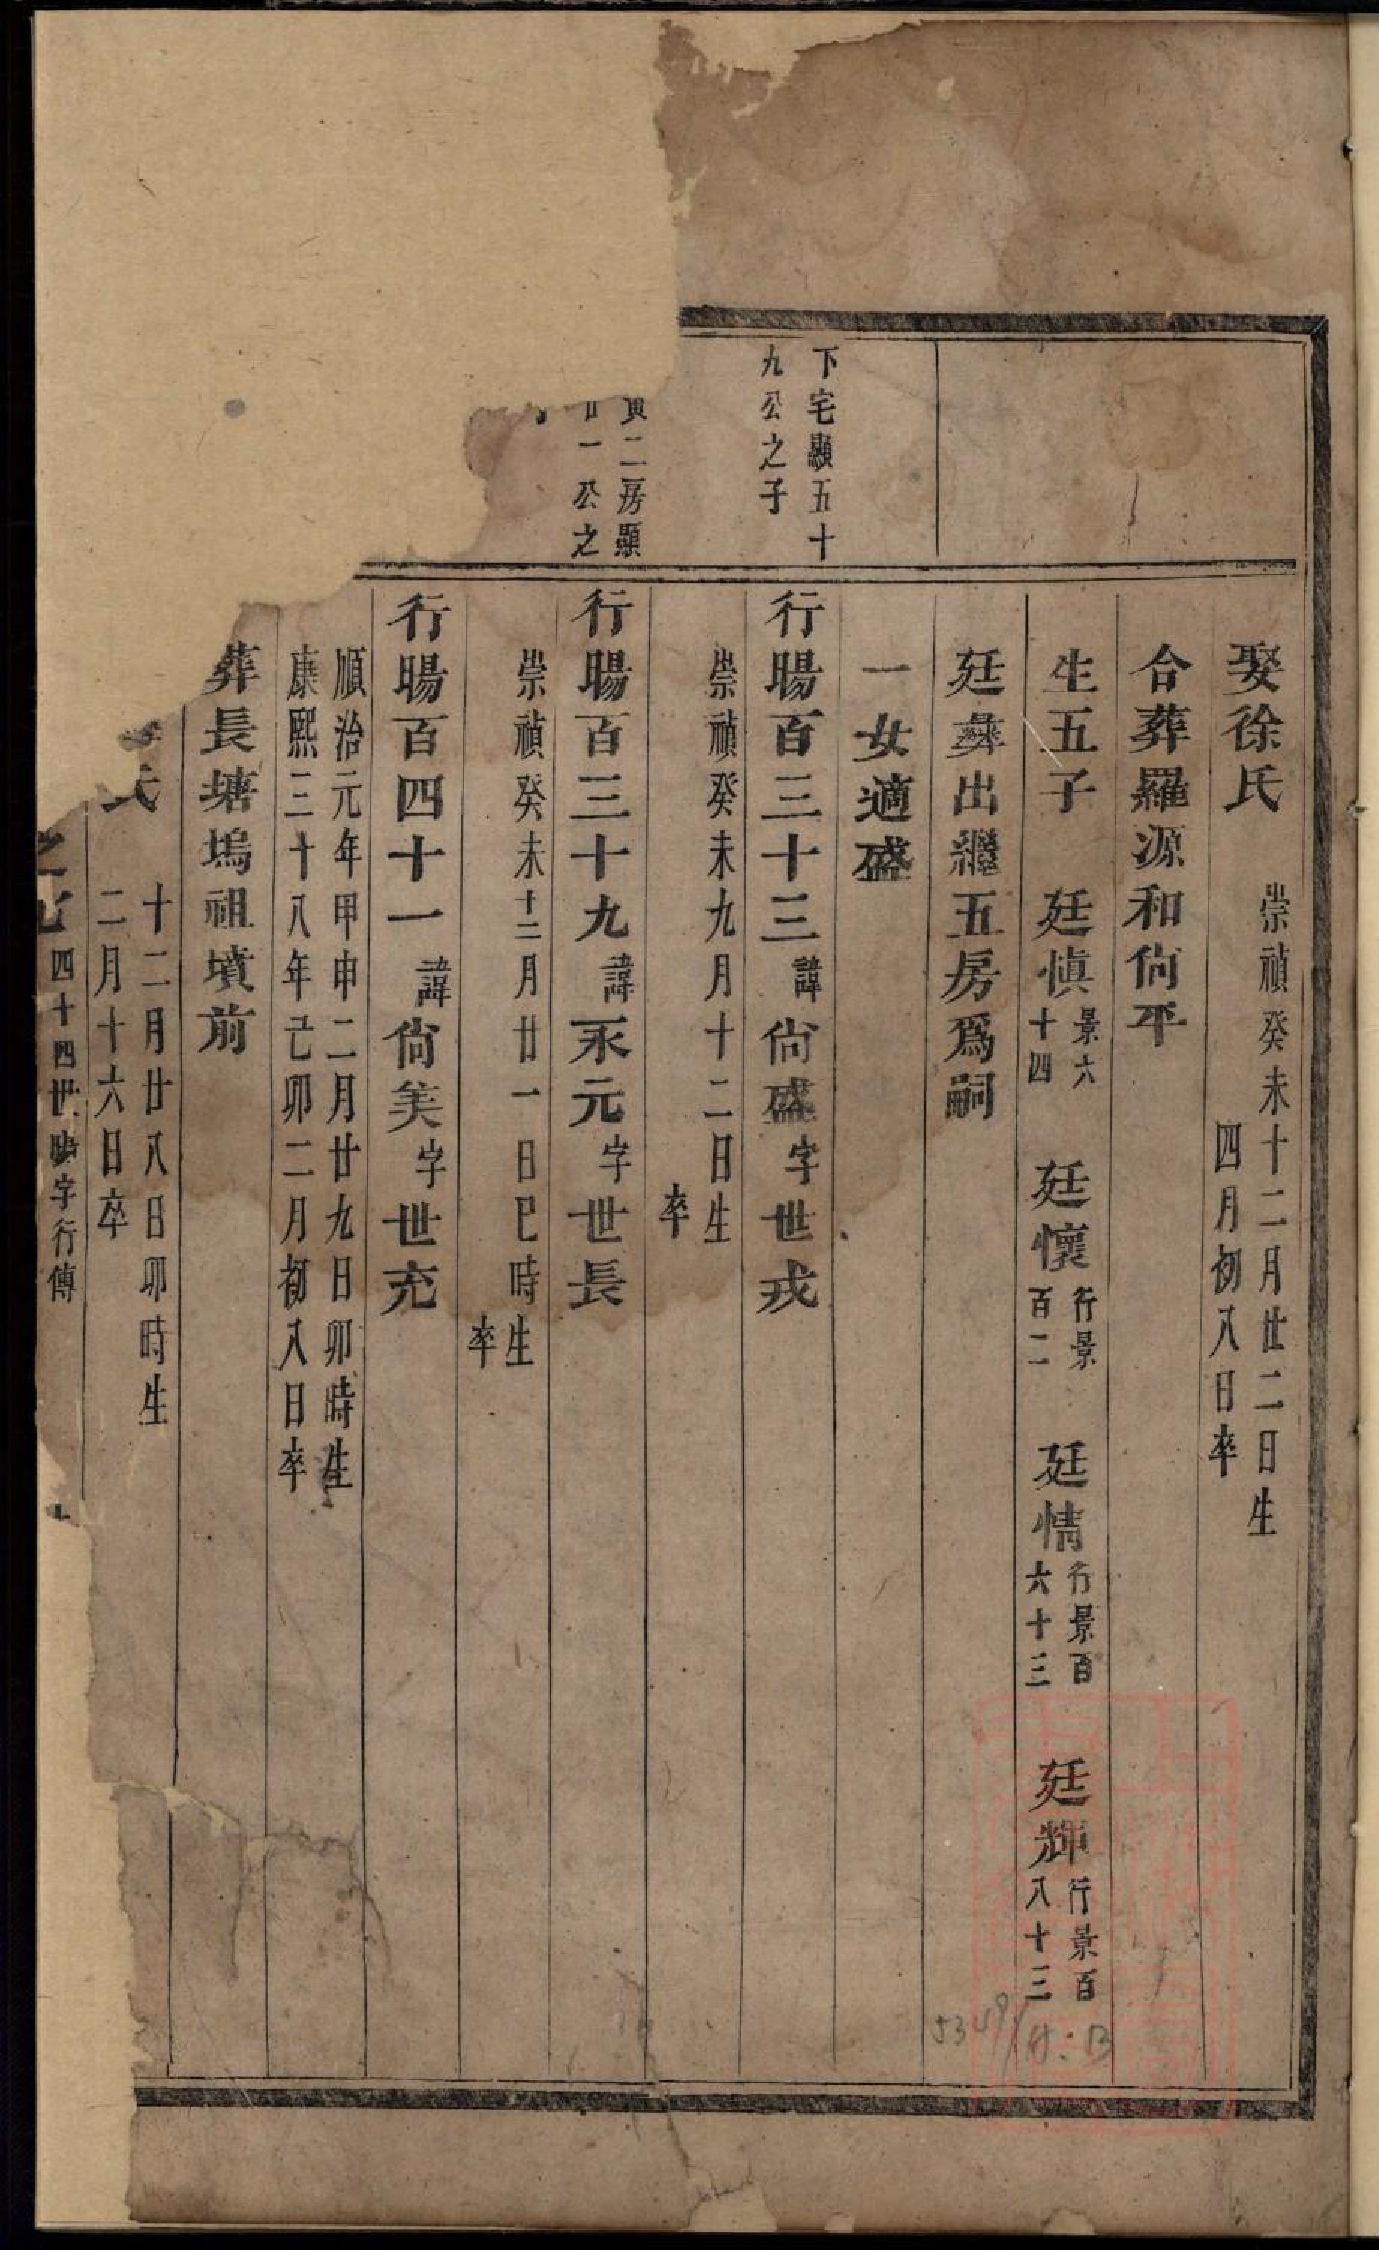 娶徐氏
崇禎癸未十二月廿二日生
四月初八日卒
合葬羅源和尙平
生五子 廷愼景六十四 廷懷行景百二 廷情行景百六十三 廷輝行景百八十三
廷彝出繼五房爲嗣
一女適盛
下宅顯五十
九公之子
行暘百三十三諱尙盛字世戎
崇禎癸未九月十二日生
卒
二房顯
一公之
行暘百三十九諱永元字世長
崇禎癸未十二月廿一日巳時生
卒
行暘百四十一諱尙美字世充
順治元年甲申二月廿九日卯時生
康熙三十八年己卯二月初八日卒
葬長塘塢祖墳前
氏
十二月廿八日卯時生
二月十六日卒
四十四世暘字行傳